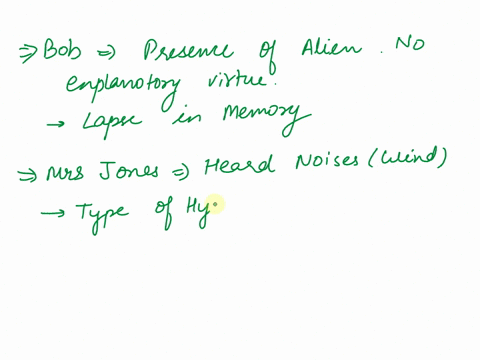 ⇒ Bob ⇒ Presence of Alien. No
explanotory virtue.
→ Lapse in Memory
⇒ Mrs Jones ⇒ Heard Noises (Wind)
→ Type of Hy